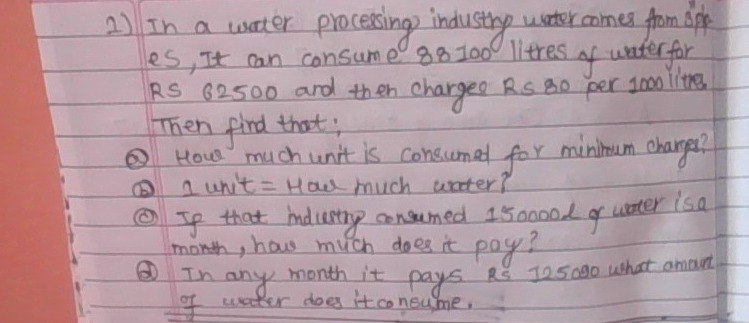 2) In a water processing industry water comes from
es, It can consume 88100 litres of water for
RS 62500 and then charges Rs 80 per 1000 litres
Then find that;
a How much unit is consumed for minimum charges?
b 1 unit = How much water?
c If that industry consumed 150000L of water is a
month, how much does it pay?
d In any month it pays Rs 125000 what amount
of water does it consume.